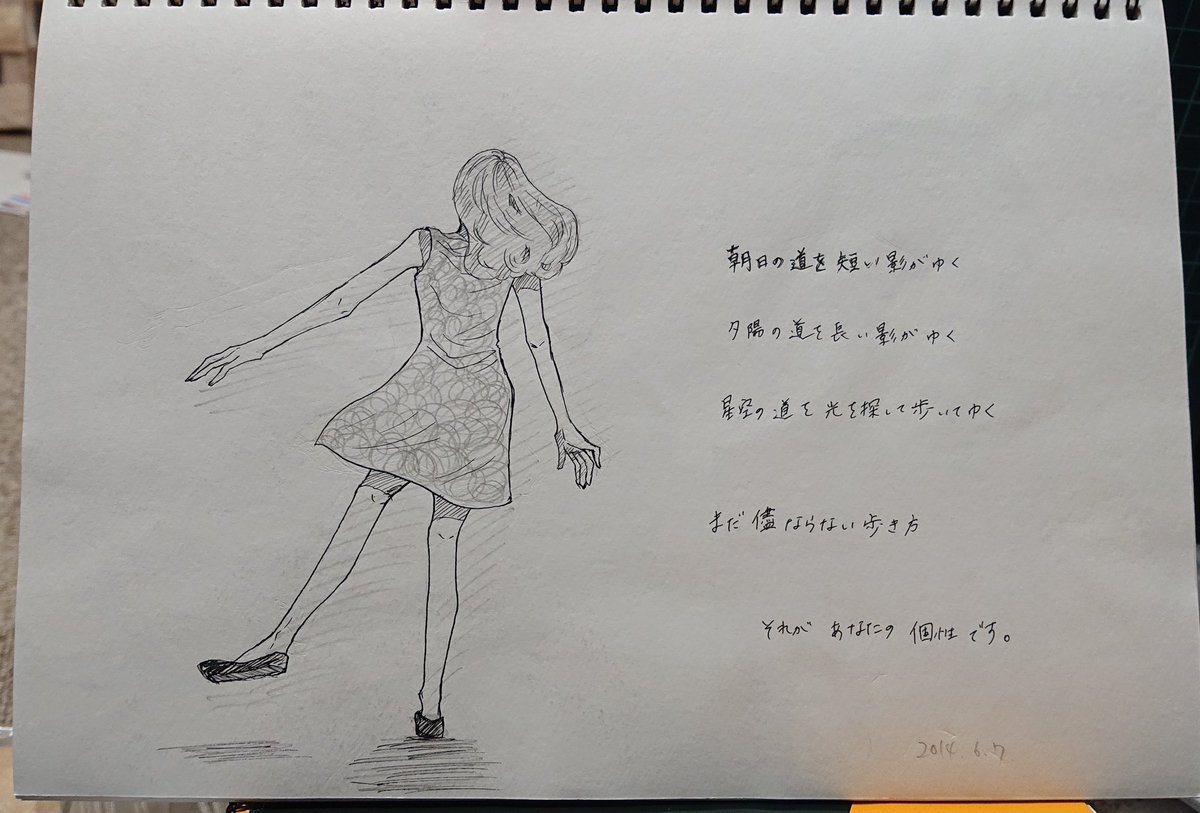 朝日の道を短い影がゆく
夕陽の道を長い影がゆく
星空の道を光を探して歩いてゆく
まだ儘ならない歩き方
それがあなたの個性です。
2014.6.7